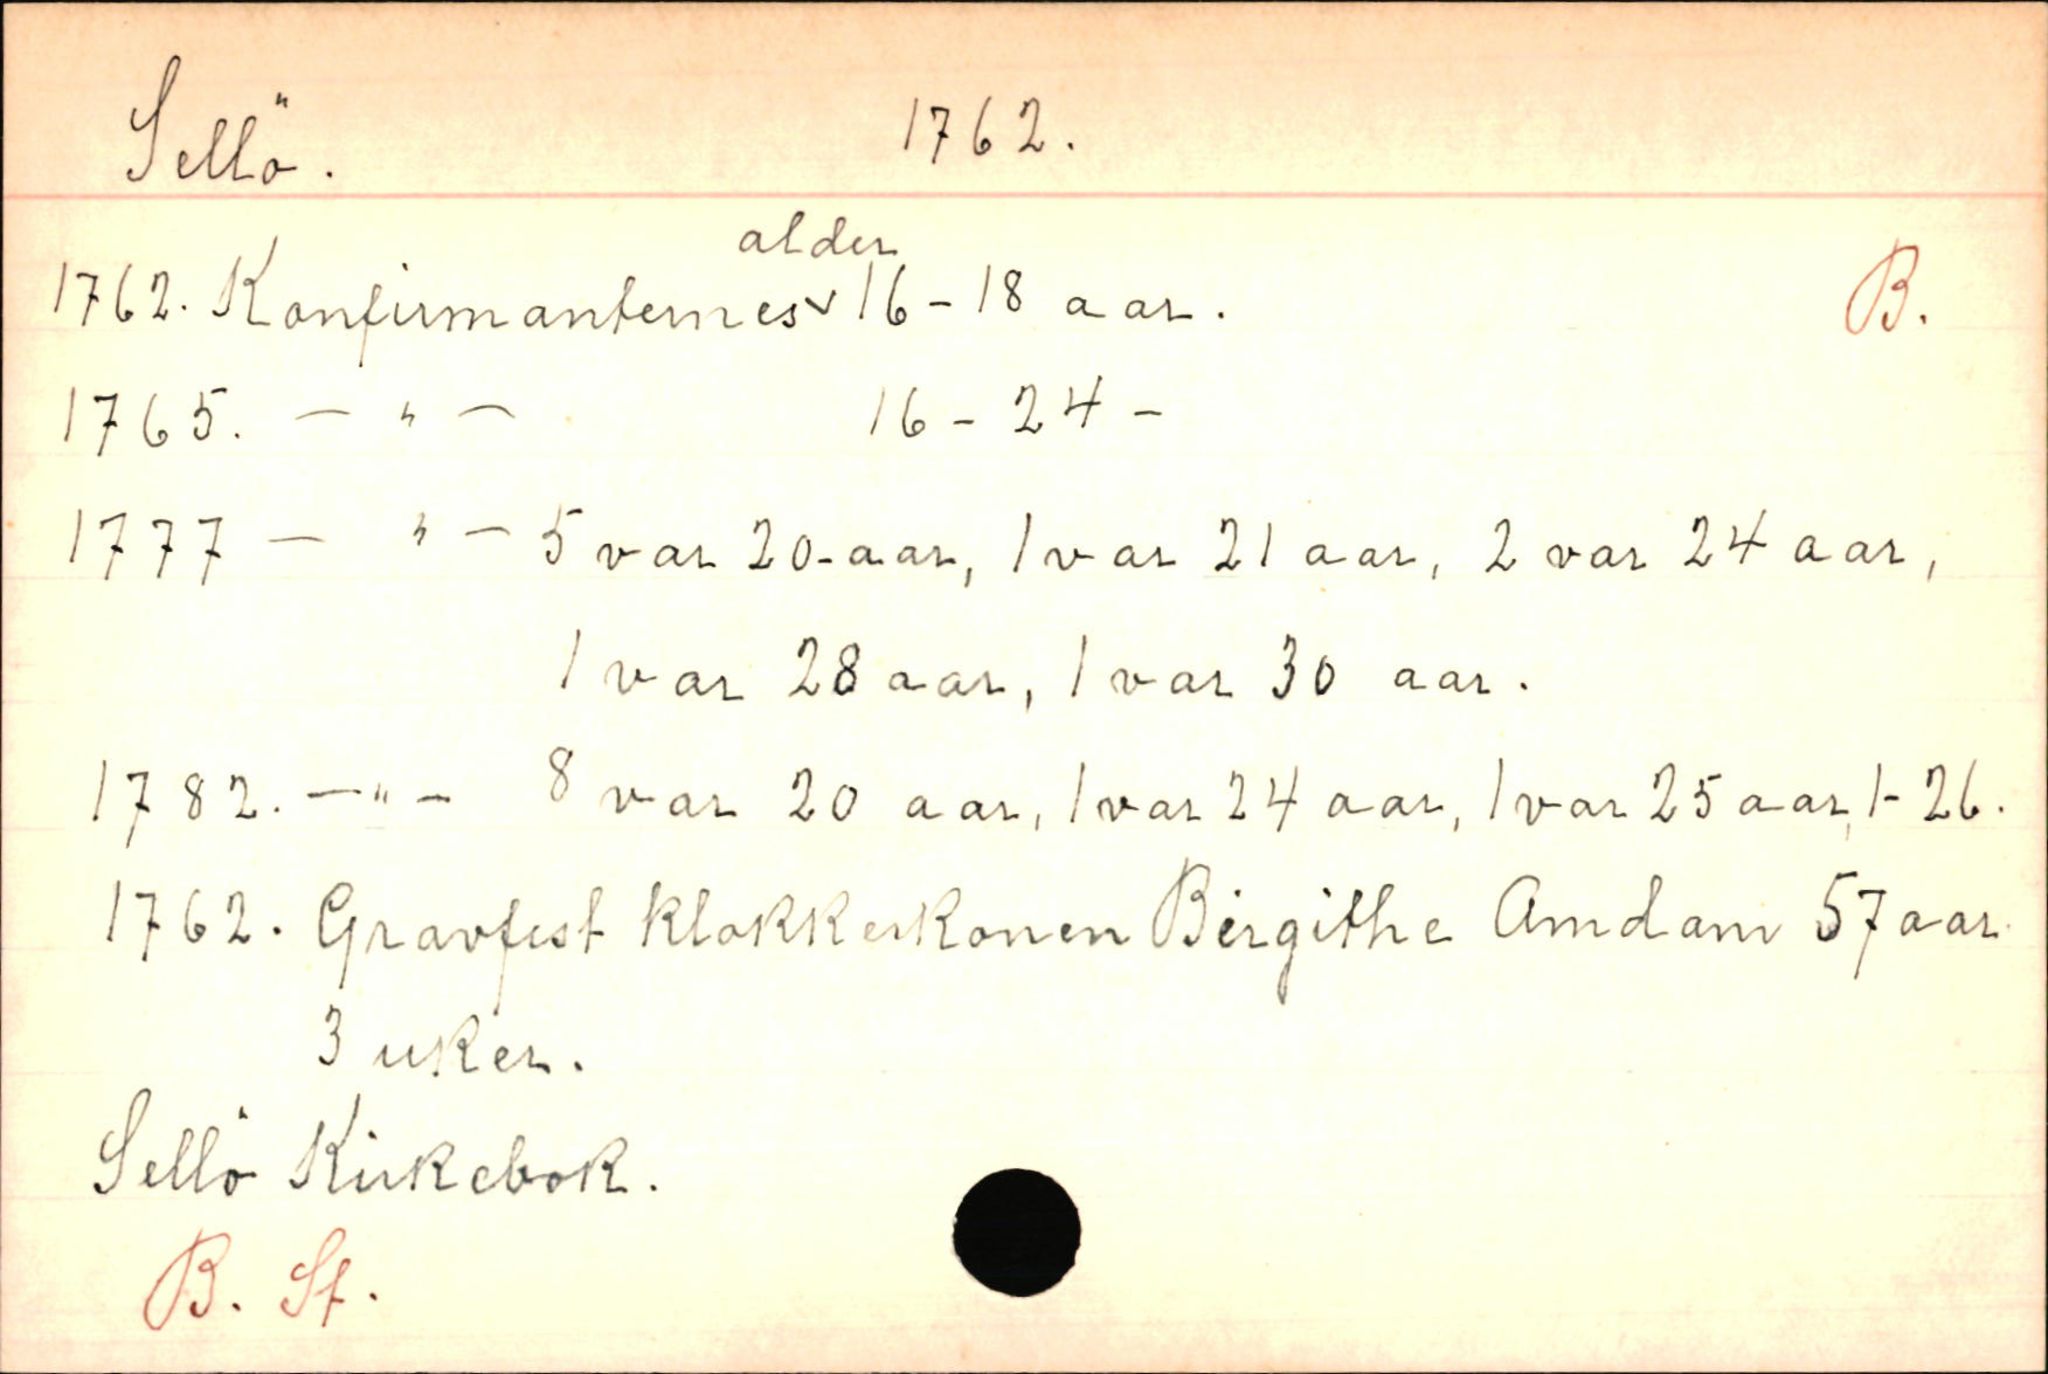 Sellö. 1762.
1762. Konfirmanternes alder 16-18 aar. B.
1765. — " — 16-24 -
1777 — " — 5 var 20-aar, 1 var 21 aar, 2 var 24 aar,
1 var 28 aar, 1 var 30 aar.
1782. — " — 8 var 20 aar, 1 var 24 aar, 1 var 25 aar, 1- 26.
1762. Gravfest klokkerkonen Birgithe Amdam 57 aar
3 uker.
Sellö Kirkebok.
B. St.